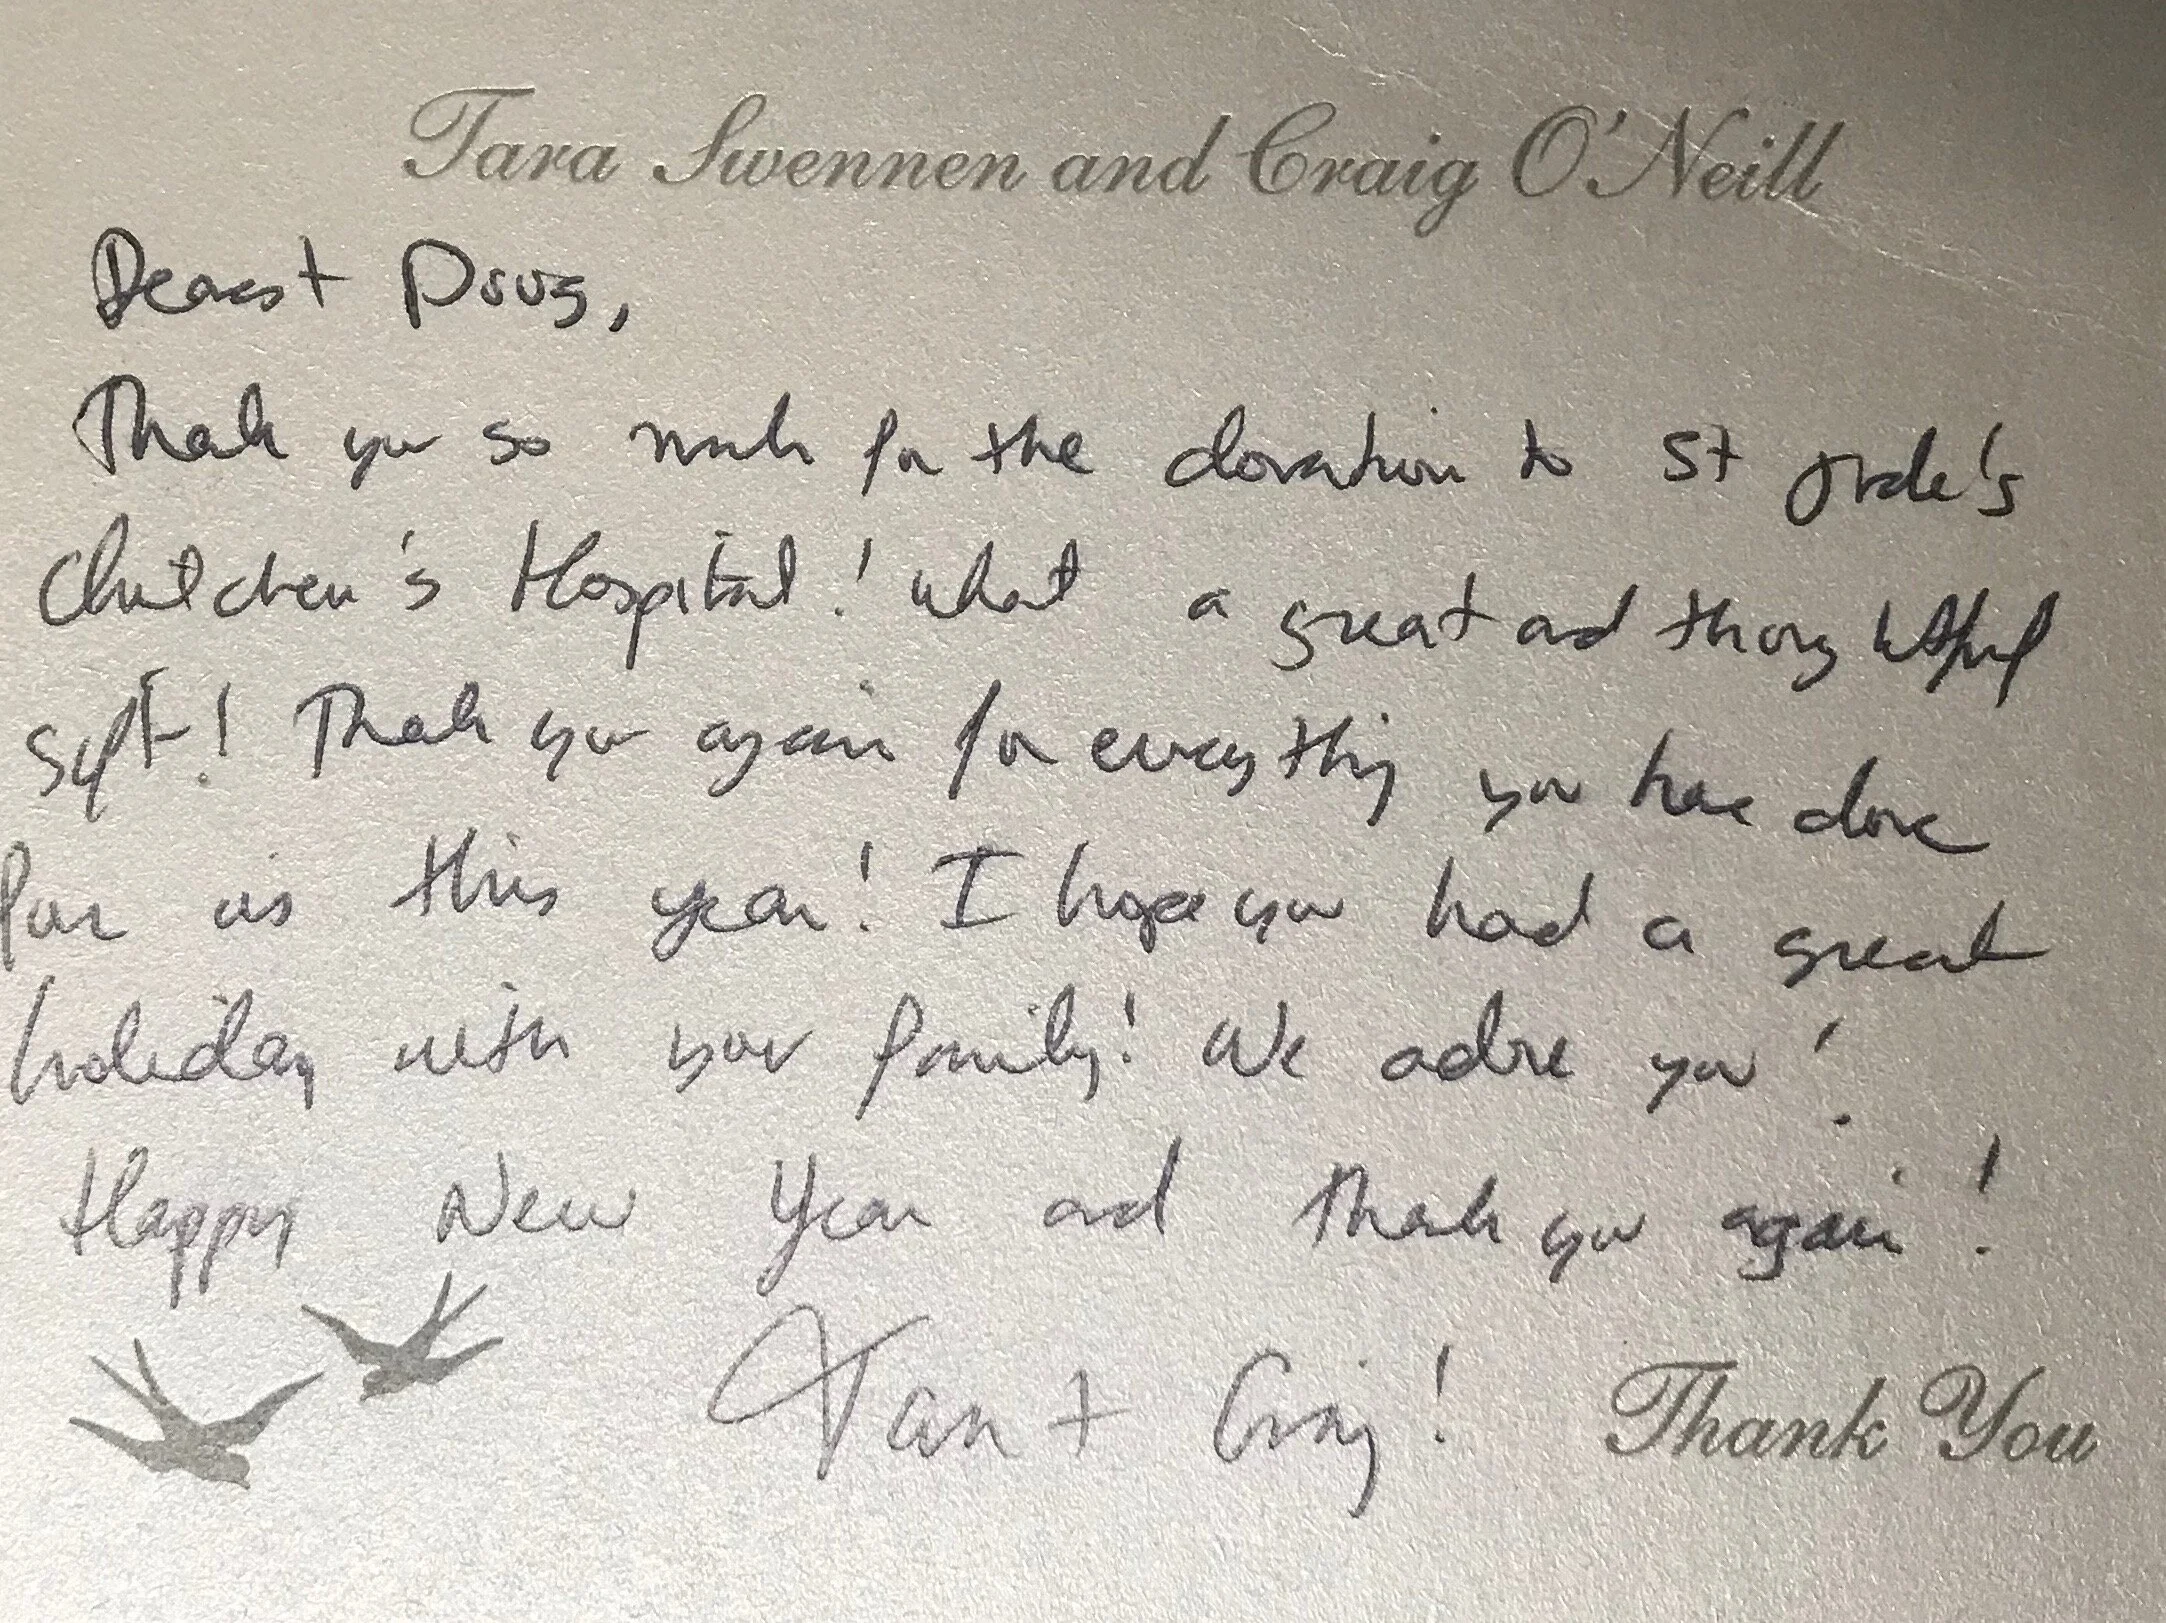 Tara Swennen and Craig O'Neill
Dearest Doug,
Thank you so much for the donation to St Jude's
Children's Hospital! what a great and thoughtful
gift! Thank you again for everything you have done
for us this year! I hope you had a great
holiday with your family! We adore you!
Happy New Year and Thank you again!
Tara + Craig!
Thank You